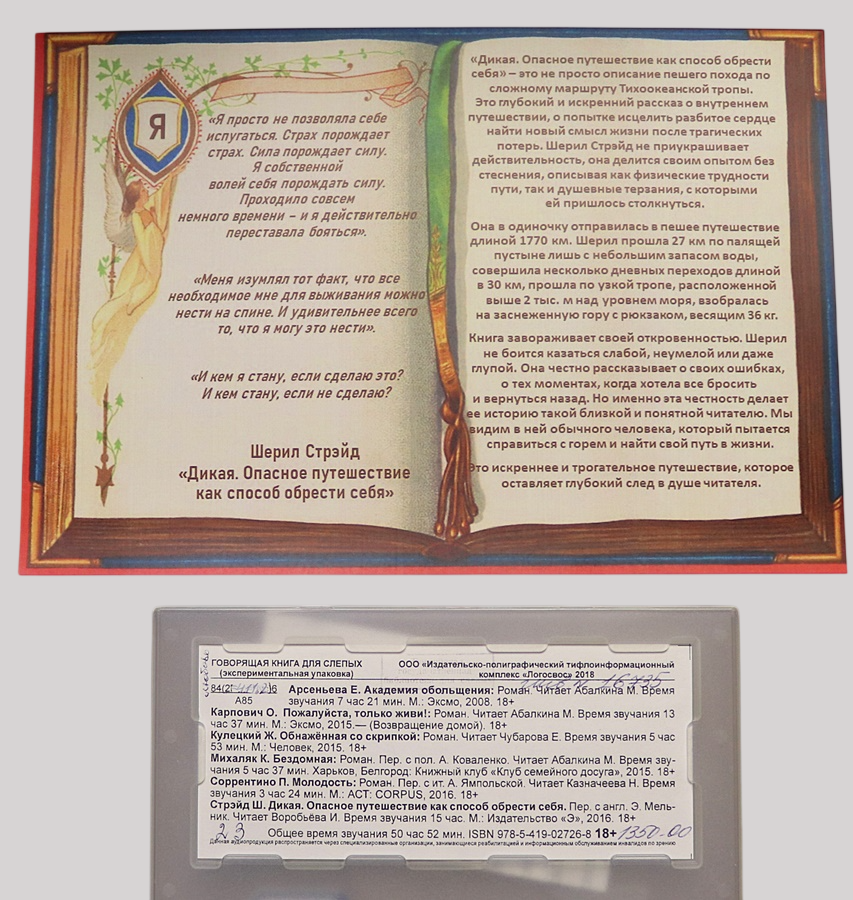 Я
«Я просто не позволяла себе
испугаться. Страх порождает
страх. Сила порождает силу.
Я собственной
волей себя порождать силу.
Проходило совсем
немного времени – и я действительно
переставала бояться».
«Меня изумлял тот факт, что все
необходимое мне для выживания можно
нести на спине. И удивительнее всего
то, что я могу это нести».
«И кем я стану, если сделаю это?
И кем стану, если не сделаю?
Шерил Стрэйд
«Дикая. Опасное путешествие
как способ обрести себя»
«Дикая. Опасное путешествие как способ обрести
себя» – это не просто описание пешего похода по
сложному маршруту Тихоокеанской тропы.
Это глубокий и искренний рассказ о внутреннем
путешествии, о попытке исцелить разбитое сердце
найти новый смысл жизни после трагических
потерь. Шерил Стрэйд не приукрашивает
действительность, она делится своим опытом без
стеснения, описывая как физические трудности
пути, так и душевные терзания, с которыми
ей пришлось столкнуться.
Она в одиночку отправилась в пешее путешествие
длиной 1770 км. Шерил прошла 27 км по палящей
пустыне лишь с небольшим запасом воды,
совершила несколько дневных переходов длиной
в 30 км, прошла по узкой тропе, расположенной
выше 2 тыс. м над уровнем моря, взобралась
на заснеженную гору с рюкзаком, весящим 36 кг.
Книга завораживает своей откровенностью. Шерил
не боится казаться слабой, неумелой или даже
глупой. Она честно рассказывает о своих ошибках,
о тех моментах, когда хотела все бросить
и вернуться назад. Но именно эта честность делает
ее историю такой близкой и понятной читателю. Мы
видим в ней обычного человека, который пытается
справиться с горем и найти свой путь в жизни.
Это искреннее и трогательное путешествие, которое
оставляет глубокий след в душе читателя.
ГОВОРЯЩАЯ КНИГА ДЛЯ СЛЕПЫХ
(экспериментальная упаковка)
ООО «Издательско-полиграфический тифлоинформационный
комплекс «Логосвос» 2018
16735
А85
Арсеньева Е. Академия обольщения: Роман. Читает Абалкина М. Время
звучания 7 час 21 мин. М.: Эксмо, 2008. 18+
Карпович О. Пожалуйста, только живи!: Роман. Читает Абалкина М. Время звучания 13
час 37 мин. М.: Эксмо, 2015.— (Возвращение домой). 18+
Кулецкий Ж. Обнажённая со скрипкой: Роман. Читает Чубарова Е. Время звучания 5 час
53 мин. М.: Человек, 2015. 18+
Михаляк К. Бездомная: Роман. Пер. с пол. А. Коваленко. Читает Абалкина М. Время зву-
чания 5 час 37 мин. Харьков, Белгород: Книжный клуб «Клуб семейного досуга», 2015. 18+
Соррентино П. Молодость: Роман. Пер. с ит. А. Ямпольской. Читает Казначеева Н. Время
звучания 3 час 24 мин. М.: АСТ: CORPUS, 2016. 18+
Стрэйд Ш. Дикая. Опасное путешествие как способ обрести себя. Пер. с англ. Э. Мель-
ник. Читает Воробьёва И. Время звучания 15 час. М.: Издательство «Э», 2016. 18+
23 Общее время звучания 50 час 52 мин. ISBN 978-5-419-02726-8 18+ 1350-00
Данная аудиопродукция распространяется через специализированные организации, занимающиеся реабилитацией и информационным обслуживанием инвалидов по зрению